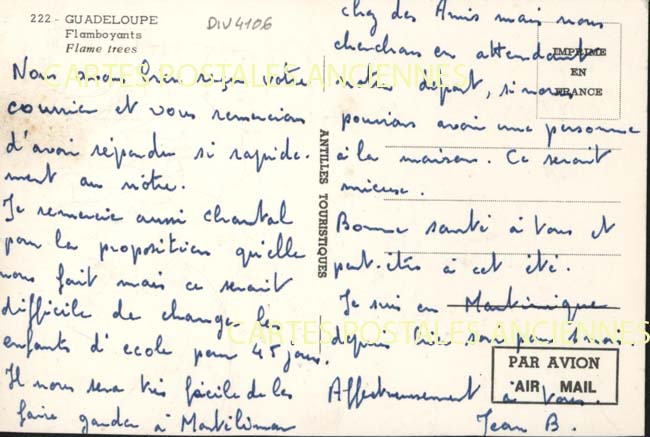 222 - GUADELOUPE
Flamboyants
Flame trees
DIV4106
Nous avons bien reçu votre
courrier et vous remercions
d'avoir répondu si rapide-
ment au nôtre.
Je remercie aussi Chantal
pour la proposition qu'elle
nous fait mais ce serait
difficile de changer les
enfants d'ecole pour 45 jours.
Il nous sera très facile de les
faire garder à Montélimar
chez des Amis mais nous
cherchons en attendant
notre départ, si nous
pouvions avoir une personne
à la maison. Ce serait
mieux.
Bonne santé à Vous et
peut-être à cet été.
Je suis en Martinique
depuis hier soir pour 1 mois.
Affectueusement
à Vous.
Jean B.
IMPRIMÉ
EN
FRANCE
ANTILLES TOURISTIQUES
PAR AVION
AIR MAIL
CARTES POSTALES ANCIENNES
CARTES POSTALES ANCIENNES